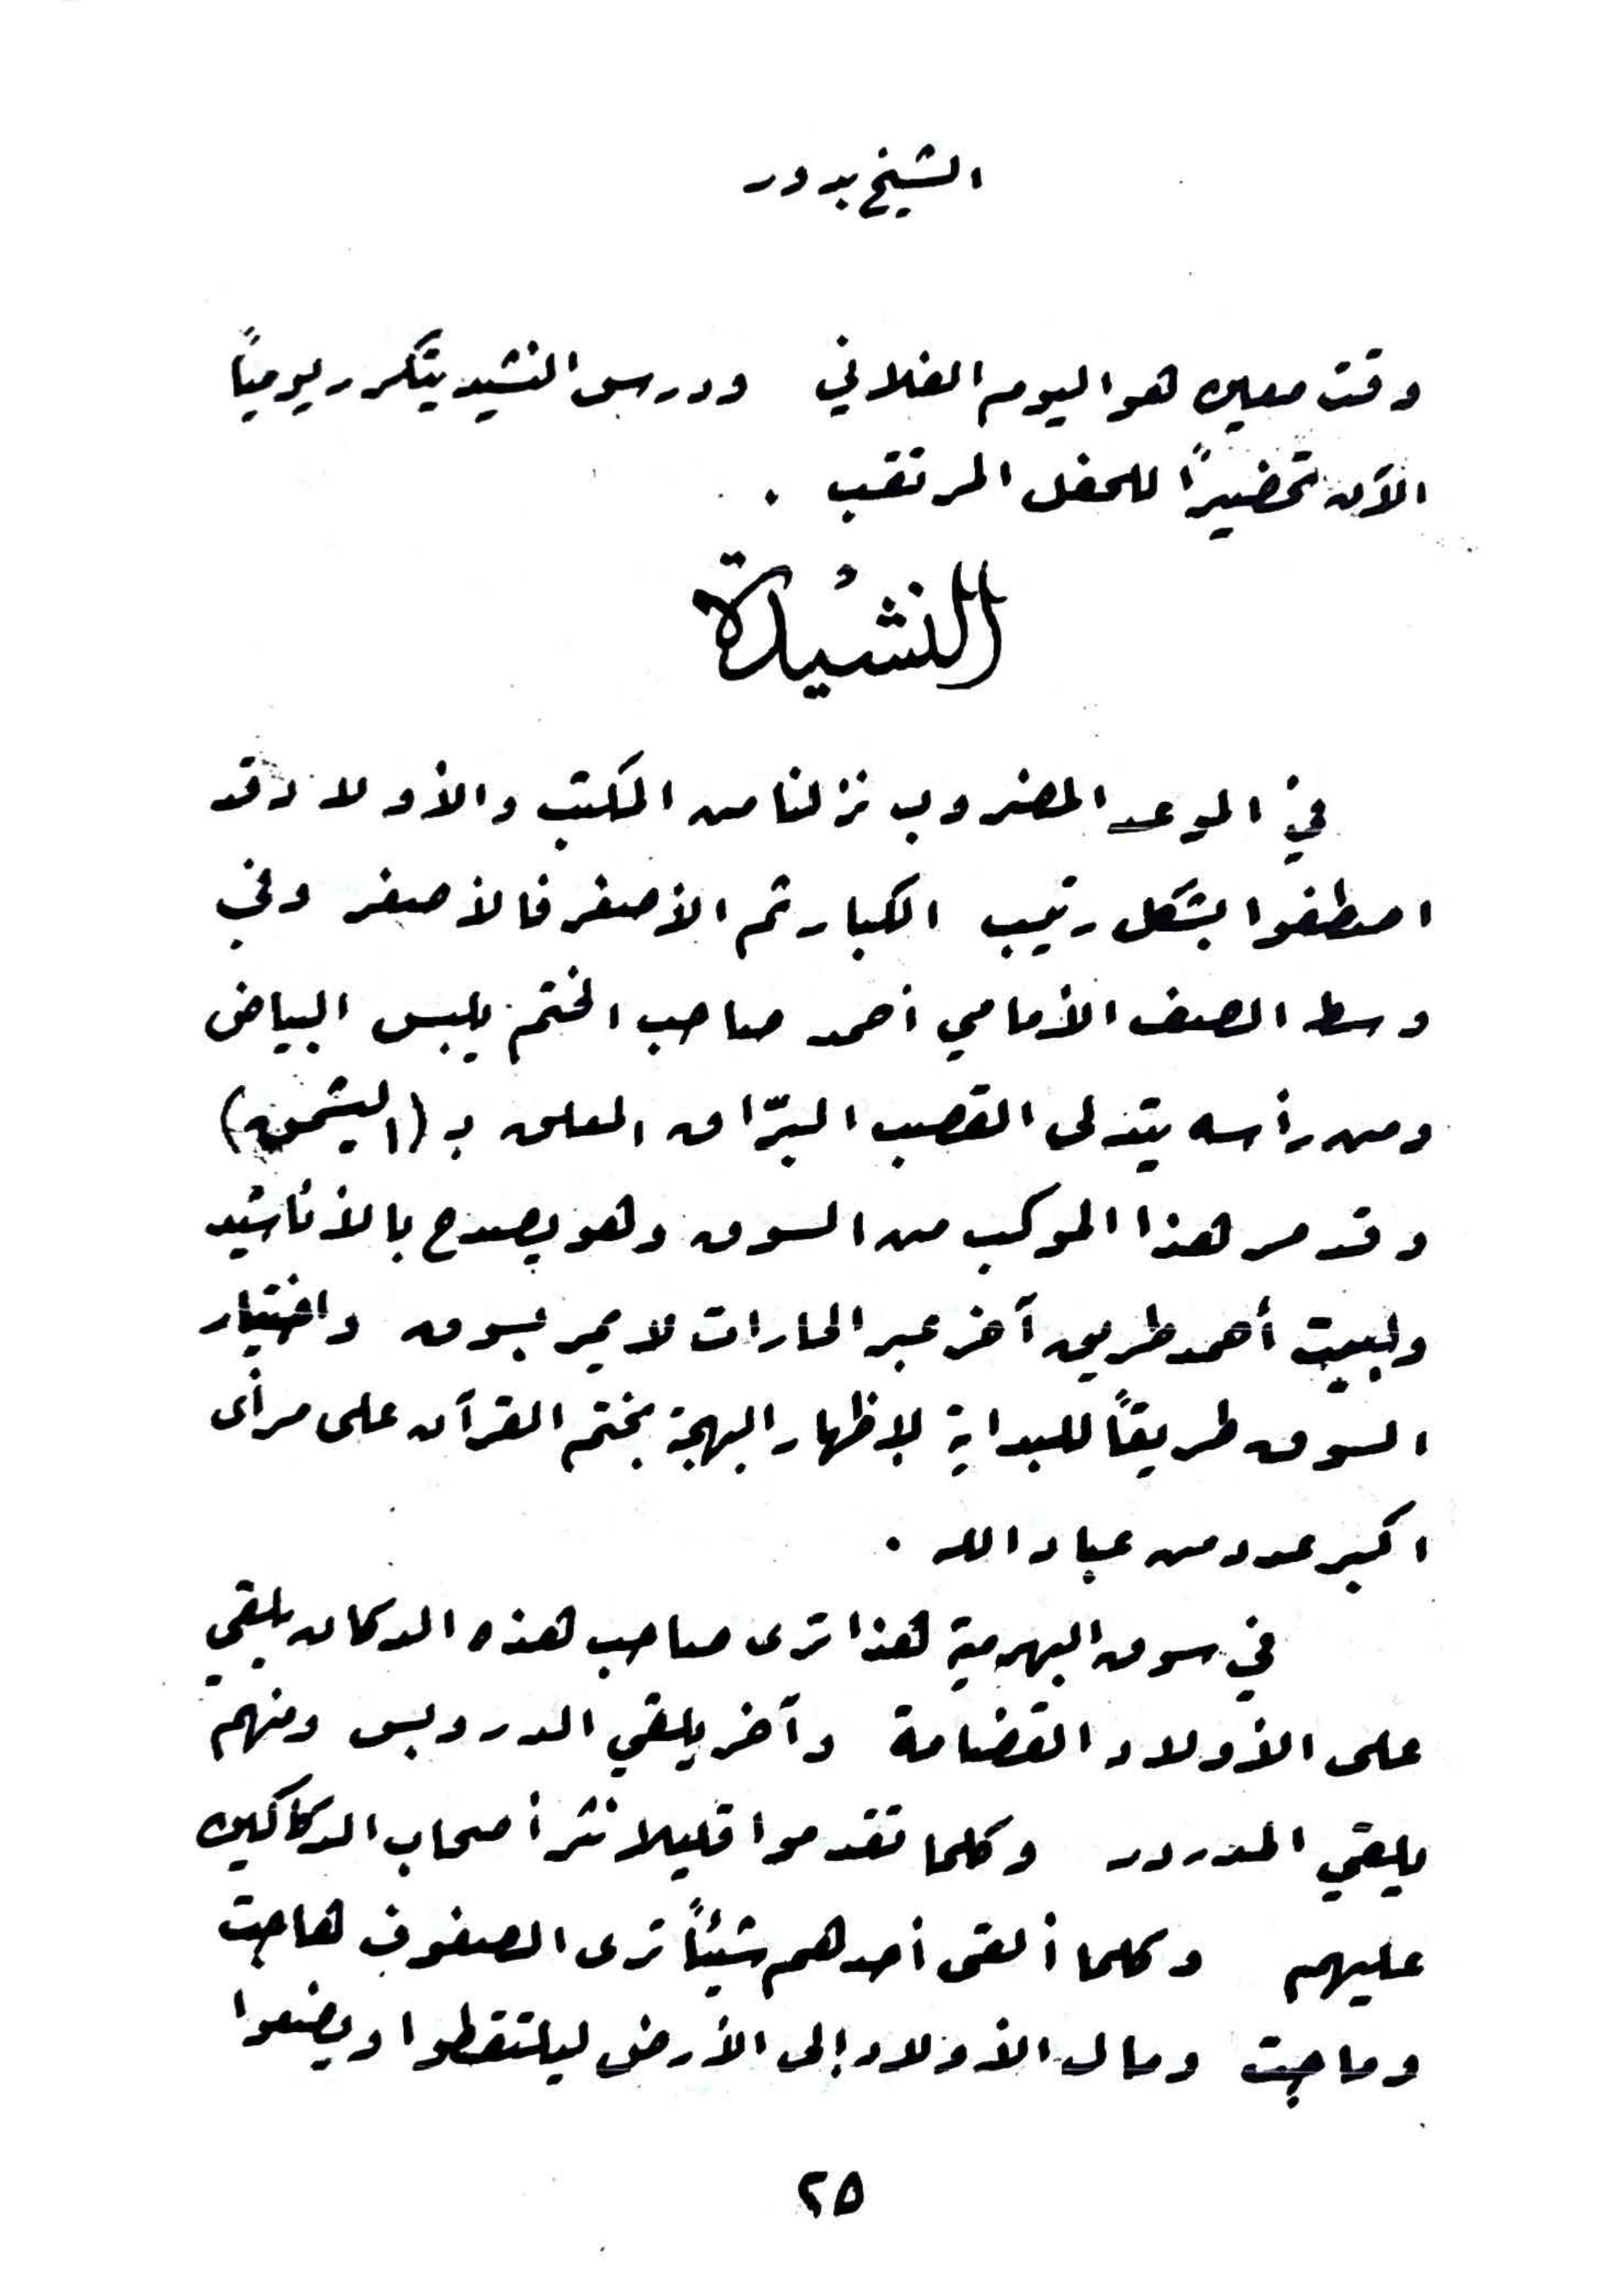 الشيخ بدور
وقت معين هو اليوم الفلاني ودرس النشيد يتكرر يومياً
الآن تحضيراً للحفل المرتقب .
النشيدة
في الموعد المضروب نزلنا من المكتب والأولاد قد
اصطفوا بشكل رتيب الكبار ثم الأصغر فالأصغر وفي
وسط الصف الأمامي أحمد صاحب الختم يلبس البياض
ومن رأسه يتدلى القصب البرّاق المعلق بـ (اليشمق)
وقد مر هذا الموكب من السوق وهو يصدح بالأناشيد
ولبيت أحمد طريق آخر عبر الحارات لا يمر بسوق واختيار
السوق طريقاً للبداية لإظهار البهجة بختم القرآن على مرأى
اكبر عدد من عباد الله .
في سوق البهرمية هذا ترى صاحب هذه الدكان يلقي
على الأولاد القضامة وآخر يلقي الدروبس ومنهم
يلقي المدردر وكلما تقدموا قليلا نثر أصحاب الدكاكين
عليهم وكلما ألقى أحدهم شيئاً ترى الصفوف هاجت
وماجت ومال الأولاد إلى الأرض ليلتقطوا ويضعوا
٢٥